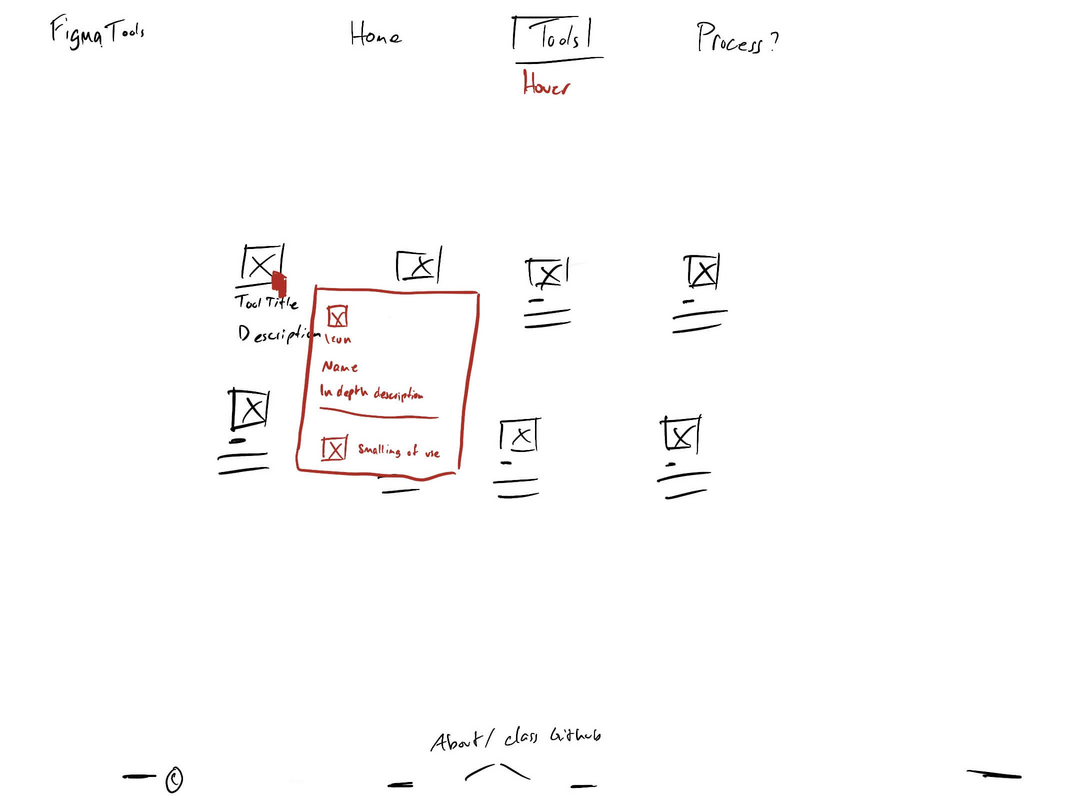 Figma Tools
Home
Tools
Process?
Hover
Tool Title
Description
Icon
Name
In depth description
Smalling of use
About/ class Github
©